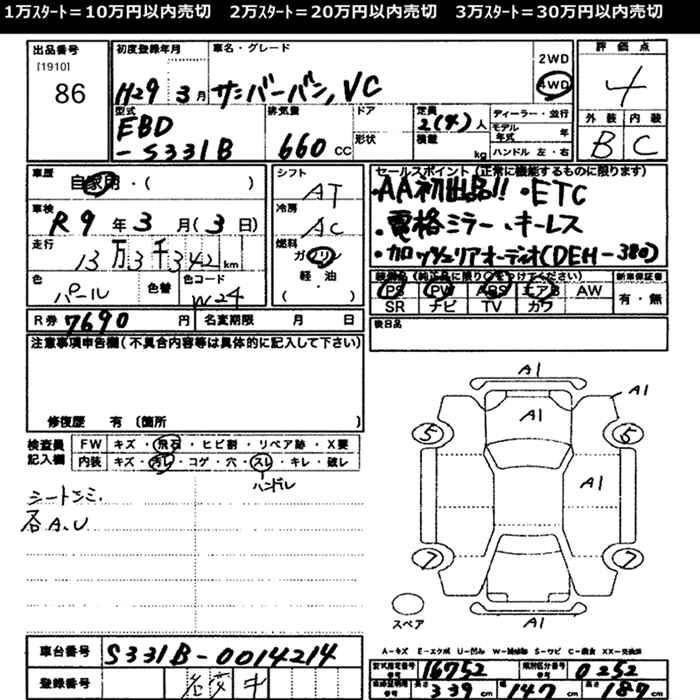 1万ｽﾀｰﾄ＝10万円以内売切　2万ｽﾀｰﾄ＝20万円以内売切　3万ｽﾀｰﾄ＝30万円以内売切
出品番号
[1910]
86
初度登録年月
H29 3月
車名・グレード
サンバーバン, VC
2WD
4WD
評価点
4
外装 内装
B C
型式
EBD
-S331B
排気量
660 CC
ドア
形状
定員
2(4)人
積載
kg
ディーラー・並行
モデル年式 年
ハンドル 左・右
車歴
自家用・( )
車検
R9年3月(3日)
走行
13万3千342km
色
パール
色替
色コード
W24
シフト
AT
冷房
AC
燃料
ガソリン
軽・油
( )
セールスポイント(正常に機能するものに限ります)
・AA初出品!! ・ETC
・電格ミラー・キーレス
・カロッツェリアオーディオ(DEH-380)
装備品(純正品に限り○をつけてください)
PS PW ABS エアB AW
SR ナビ TV カワ
新車保証書
有・無
R券 7690円
名変期限 月 日
後日品
注意事項申告欄(不具合内容等は具体的に記入して下さい)
修復歴 有 (箇所 )
検査員
記入欄
FW キズ・飛石・ヒビ割・リペア跡・X要
内装 キズ・汚レ・コゲ・穴・スレ・キレ・破レ
ハンドル
シートシミ.
各A.U
A1
A1
A1
5
5
A1
7
7
A1
スペア
A-キズ E-エクボ U-凹み W-補修跡 S-サビ C-腐食 XX-交換済
車台番号
S331B-0014214
登録番号
型式指定番号
参考
16752
類別区分番号
参考
0252
車検証明用
参考
長さ 339cm
幅 147cm
高さ 187cm